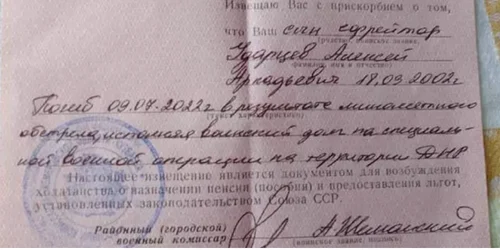 Извещаю Вас с прискорбием о том,
что Ваш сын ефрейтор
(родство, воинское звание,
Ударцев Алексей
фамилия, имя и отчество)
Аркадьевич 18.03.2002г
Погиб 09.07.2022г в результате минометного
(текст характеристики)
обстрела, исполняя воинский долг на специаль-
ной военной операции на территории ДНР
Настоящее извещение является документом для возбуждения
ходатайства о назначении пенсии (пособия) и предоставления льгот,
установленных законодательством Союза ССР.
Районный (городской)
военный комиссар
(воинское звание, подпись)